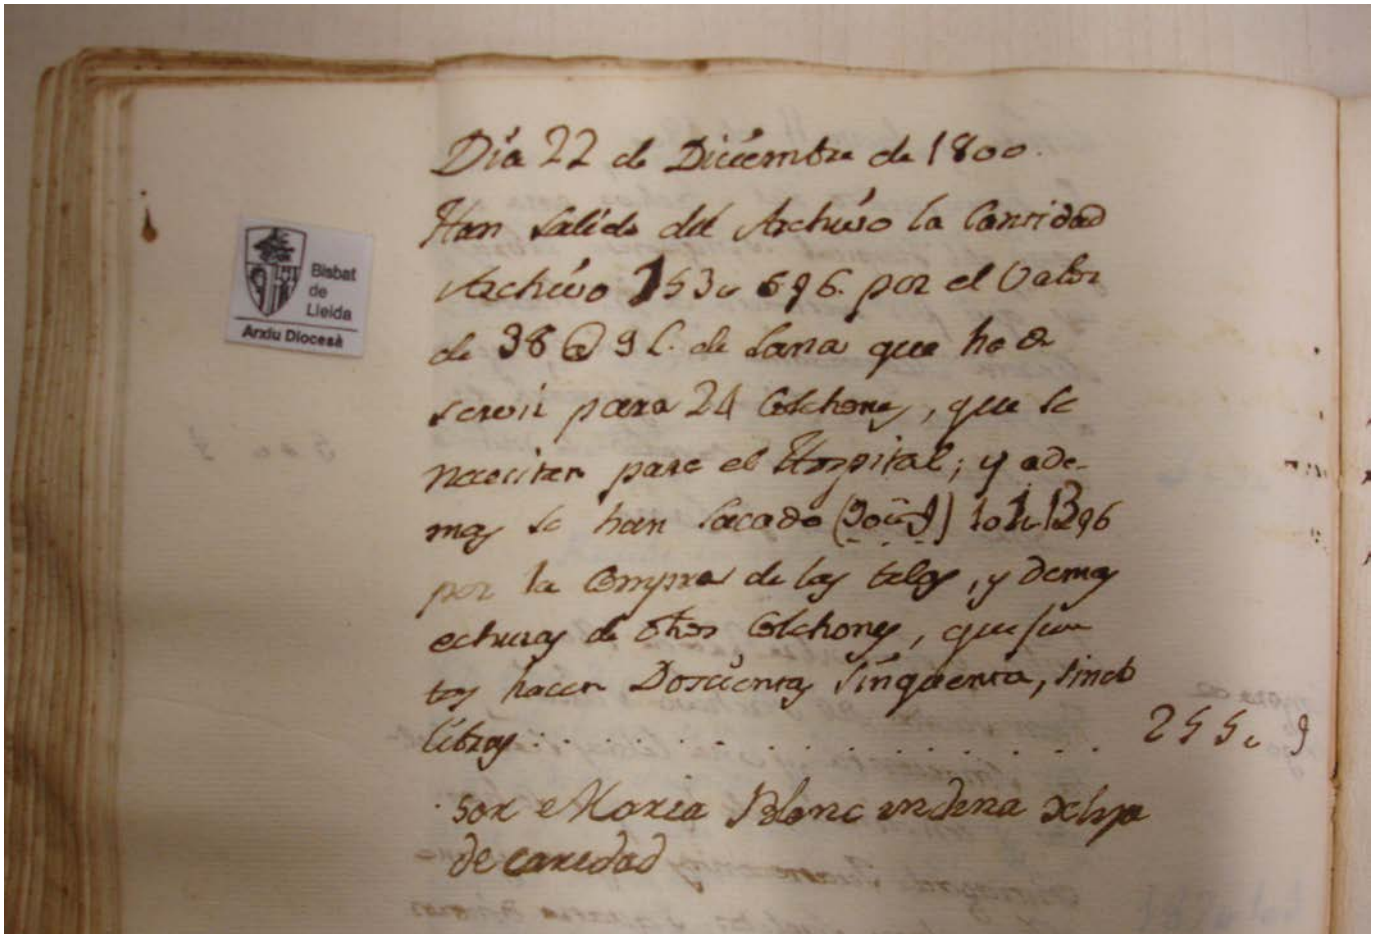 Bisbat
de
Lleida
Arxiu Diocesà
Dia 22 de Diciembre de 1800.
Han salido del Archivo la Cantidad
Archivo 153u 6 96. por el Valor
de 38 @ 9 l. de Lana que ha de
servir para 24 Colchones, que se
necesitan para el Hospital; y ade-
mas se han sacado
por la Compra de las telas, y demas
echuras de dhos Colchones, que jun
tas hacen Doscientas sinquenta, sinco
libras . . . . . . . . . . . . . . . 255u 9
Sor Maria Blanc
de caridad